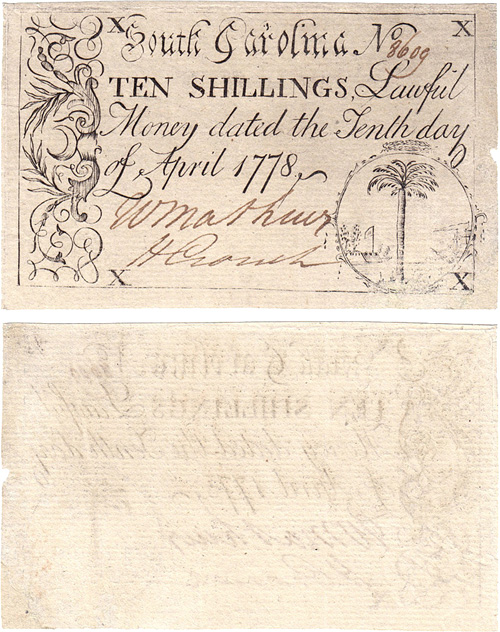 X South Carolina No 8609 X
TEN SHILLINGS, Lawful
Money dated the Tenth day
of April 1778,
H Crouch
X X